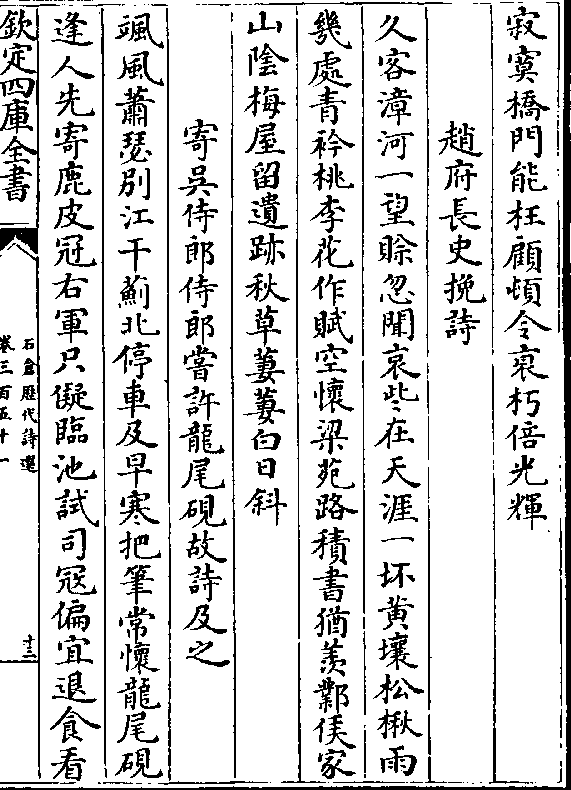 寂寞橋門能枉顧頓令衰朽倍光輝
趙府長史挽詩
久客漳河一望賒忽聞哀些在天涯一坏黄壤松楸雨
幾處青衿桃李花作賦空懷梁苑路積書猶羨鄴侯家
山陰梅屋留遺跡秋草萋萋白日斜
寄吳侍郎侍郎嘗許龍尾硯故詩及之
颯風蕭瑟别江干薊北停車及早寒把筆常懷龍尾硯
逢人先寄鹿皮冠右軍只儗臨池試司冦偏宜退食看
欽定四庫全書
石倉歴代詩選
卷三百五十一
十三